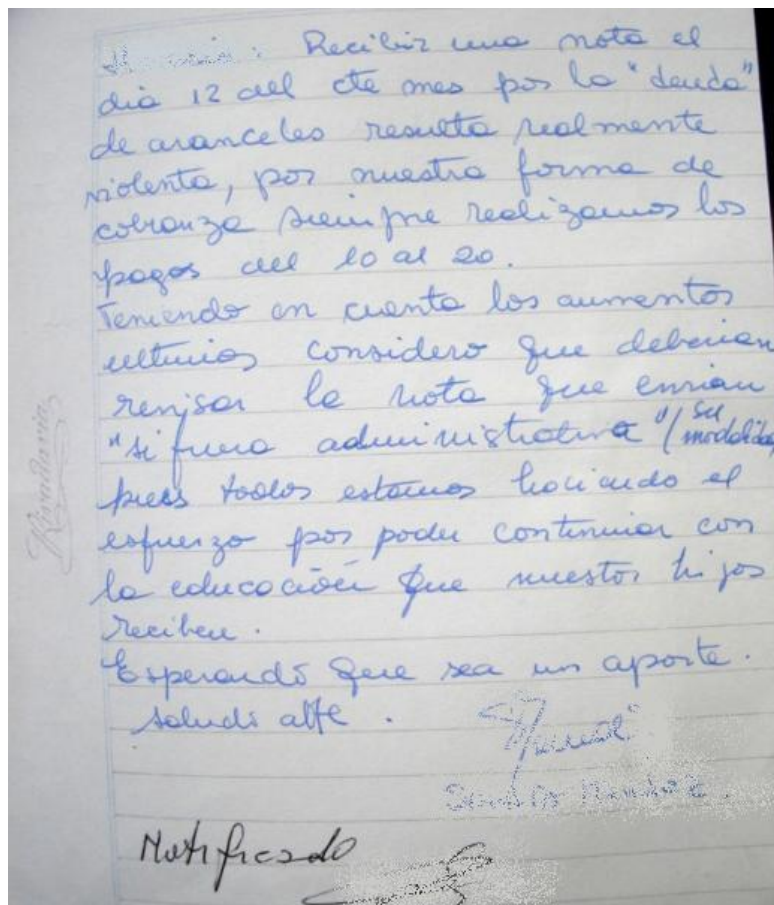 : Recibir una nota el
día 12 del cte mes por la "deuda"
de aranceles resulta realmente
violenta, por nuestra forma de
cobranza siempre realizamos los
pagos del 10 al 20.
Teniendo en cuenta los aumentos
ultimos considero que deberian
revisar la nota que envian
"si fuera administrativa"/ su modalidad
pues todos estamos haciendo el
esfuerzo por poder continuar con
la educación que nuestos hijos
reciben.
Esperando que sea un aporte.
Saludo atte.
Notificado
Rivadavia